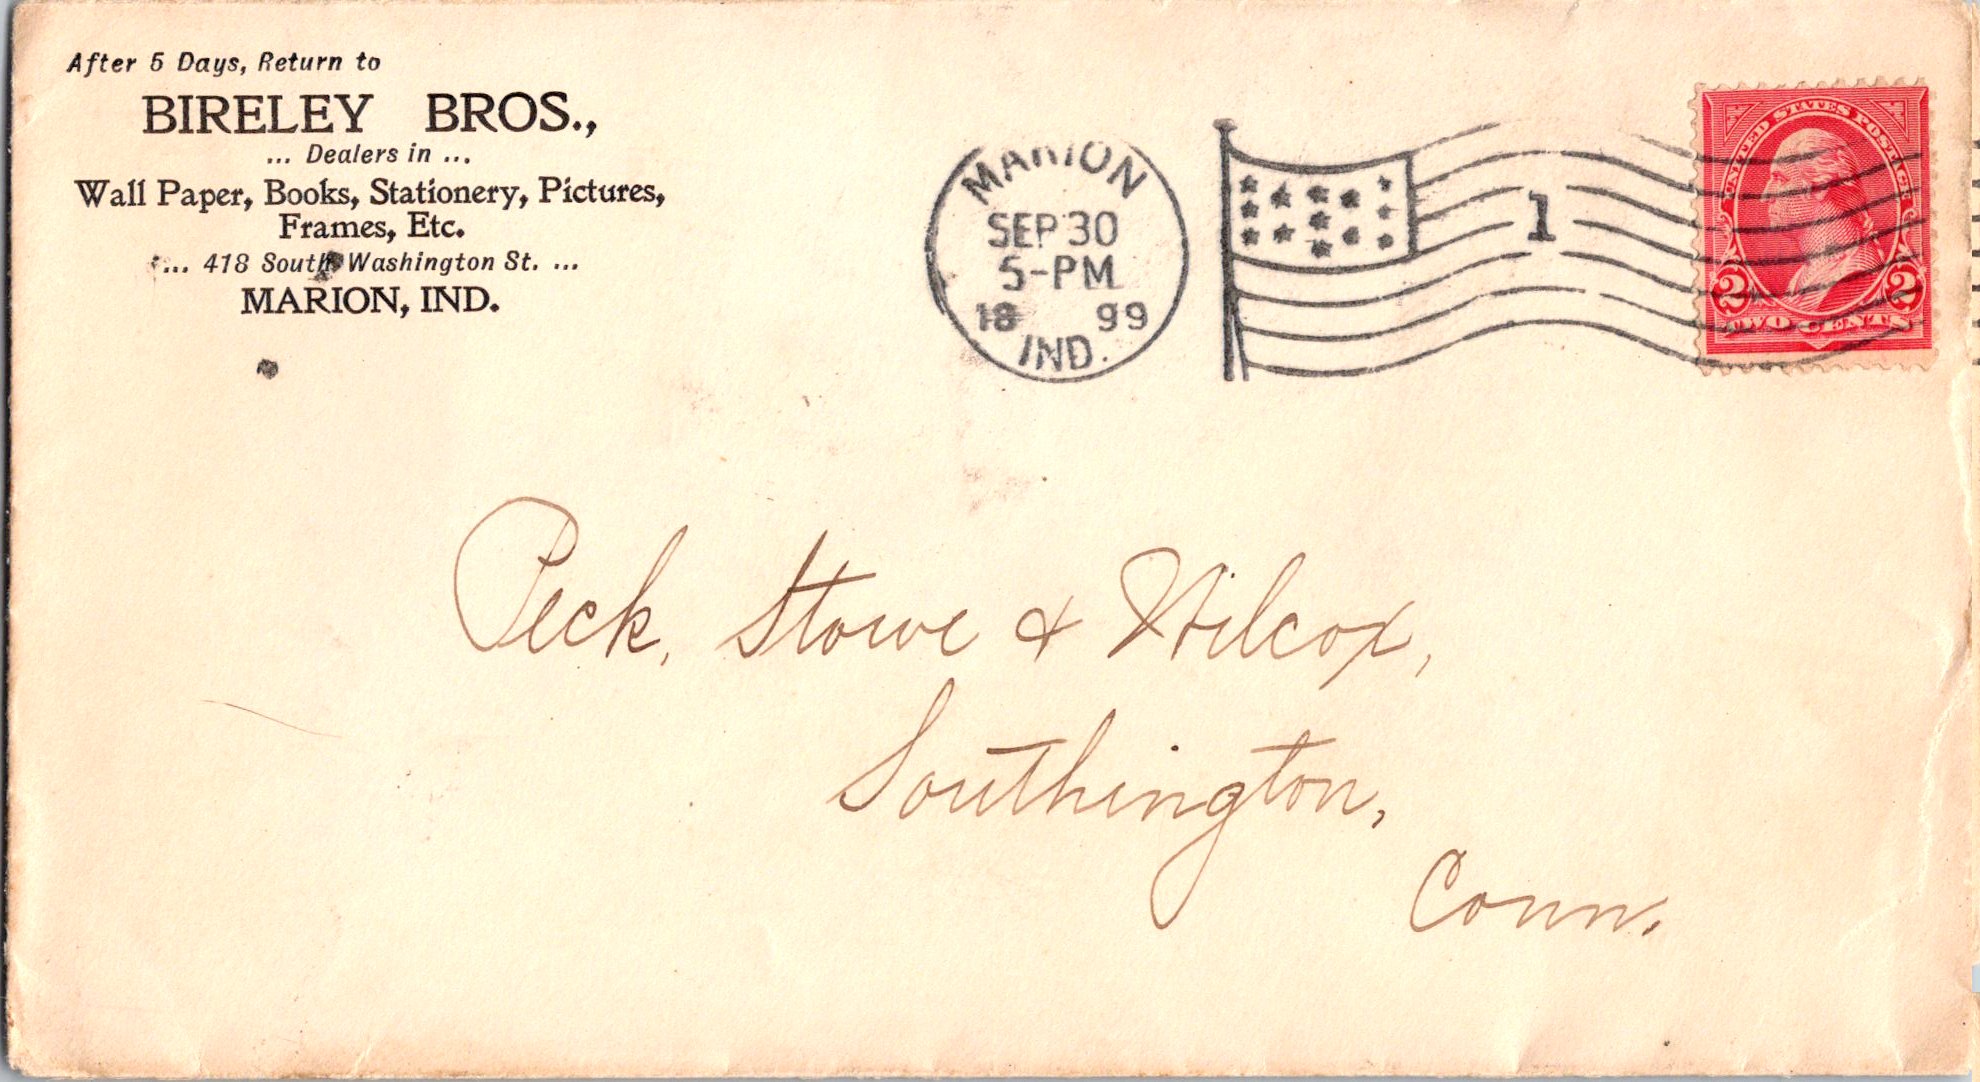 After 5 Days, Return to
BIRELEY BROS.,
... Dealers in ...
Wall Paper, Books, Stationery, Pictures,
Frames, Etc.
... 418 South Washington St. ...
MARION, IND.
MARION
SEP 30
5-PM
18 99
IND.
1
UNITED STATES POSTAGE
2 2
TWO CENTS
Peck, Stowe & Wilcox,
Southington,
Conn.